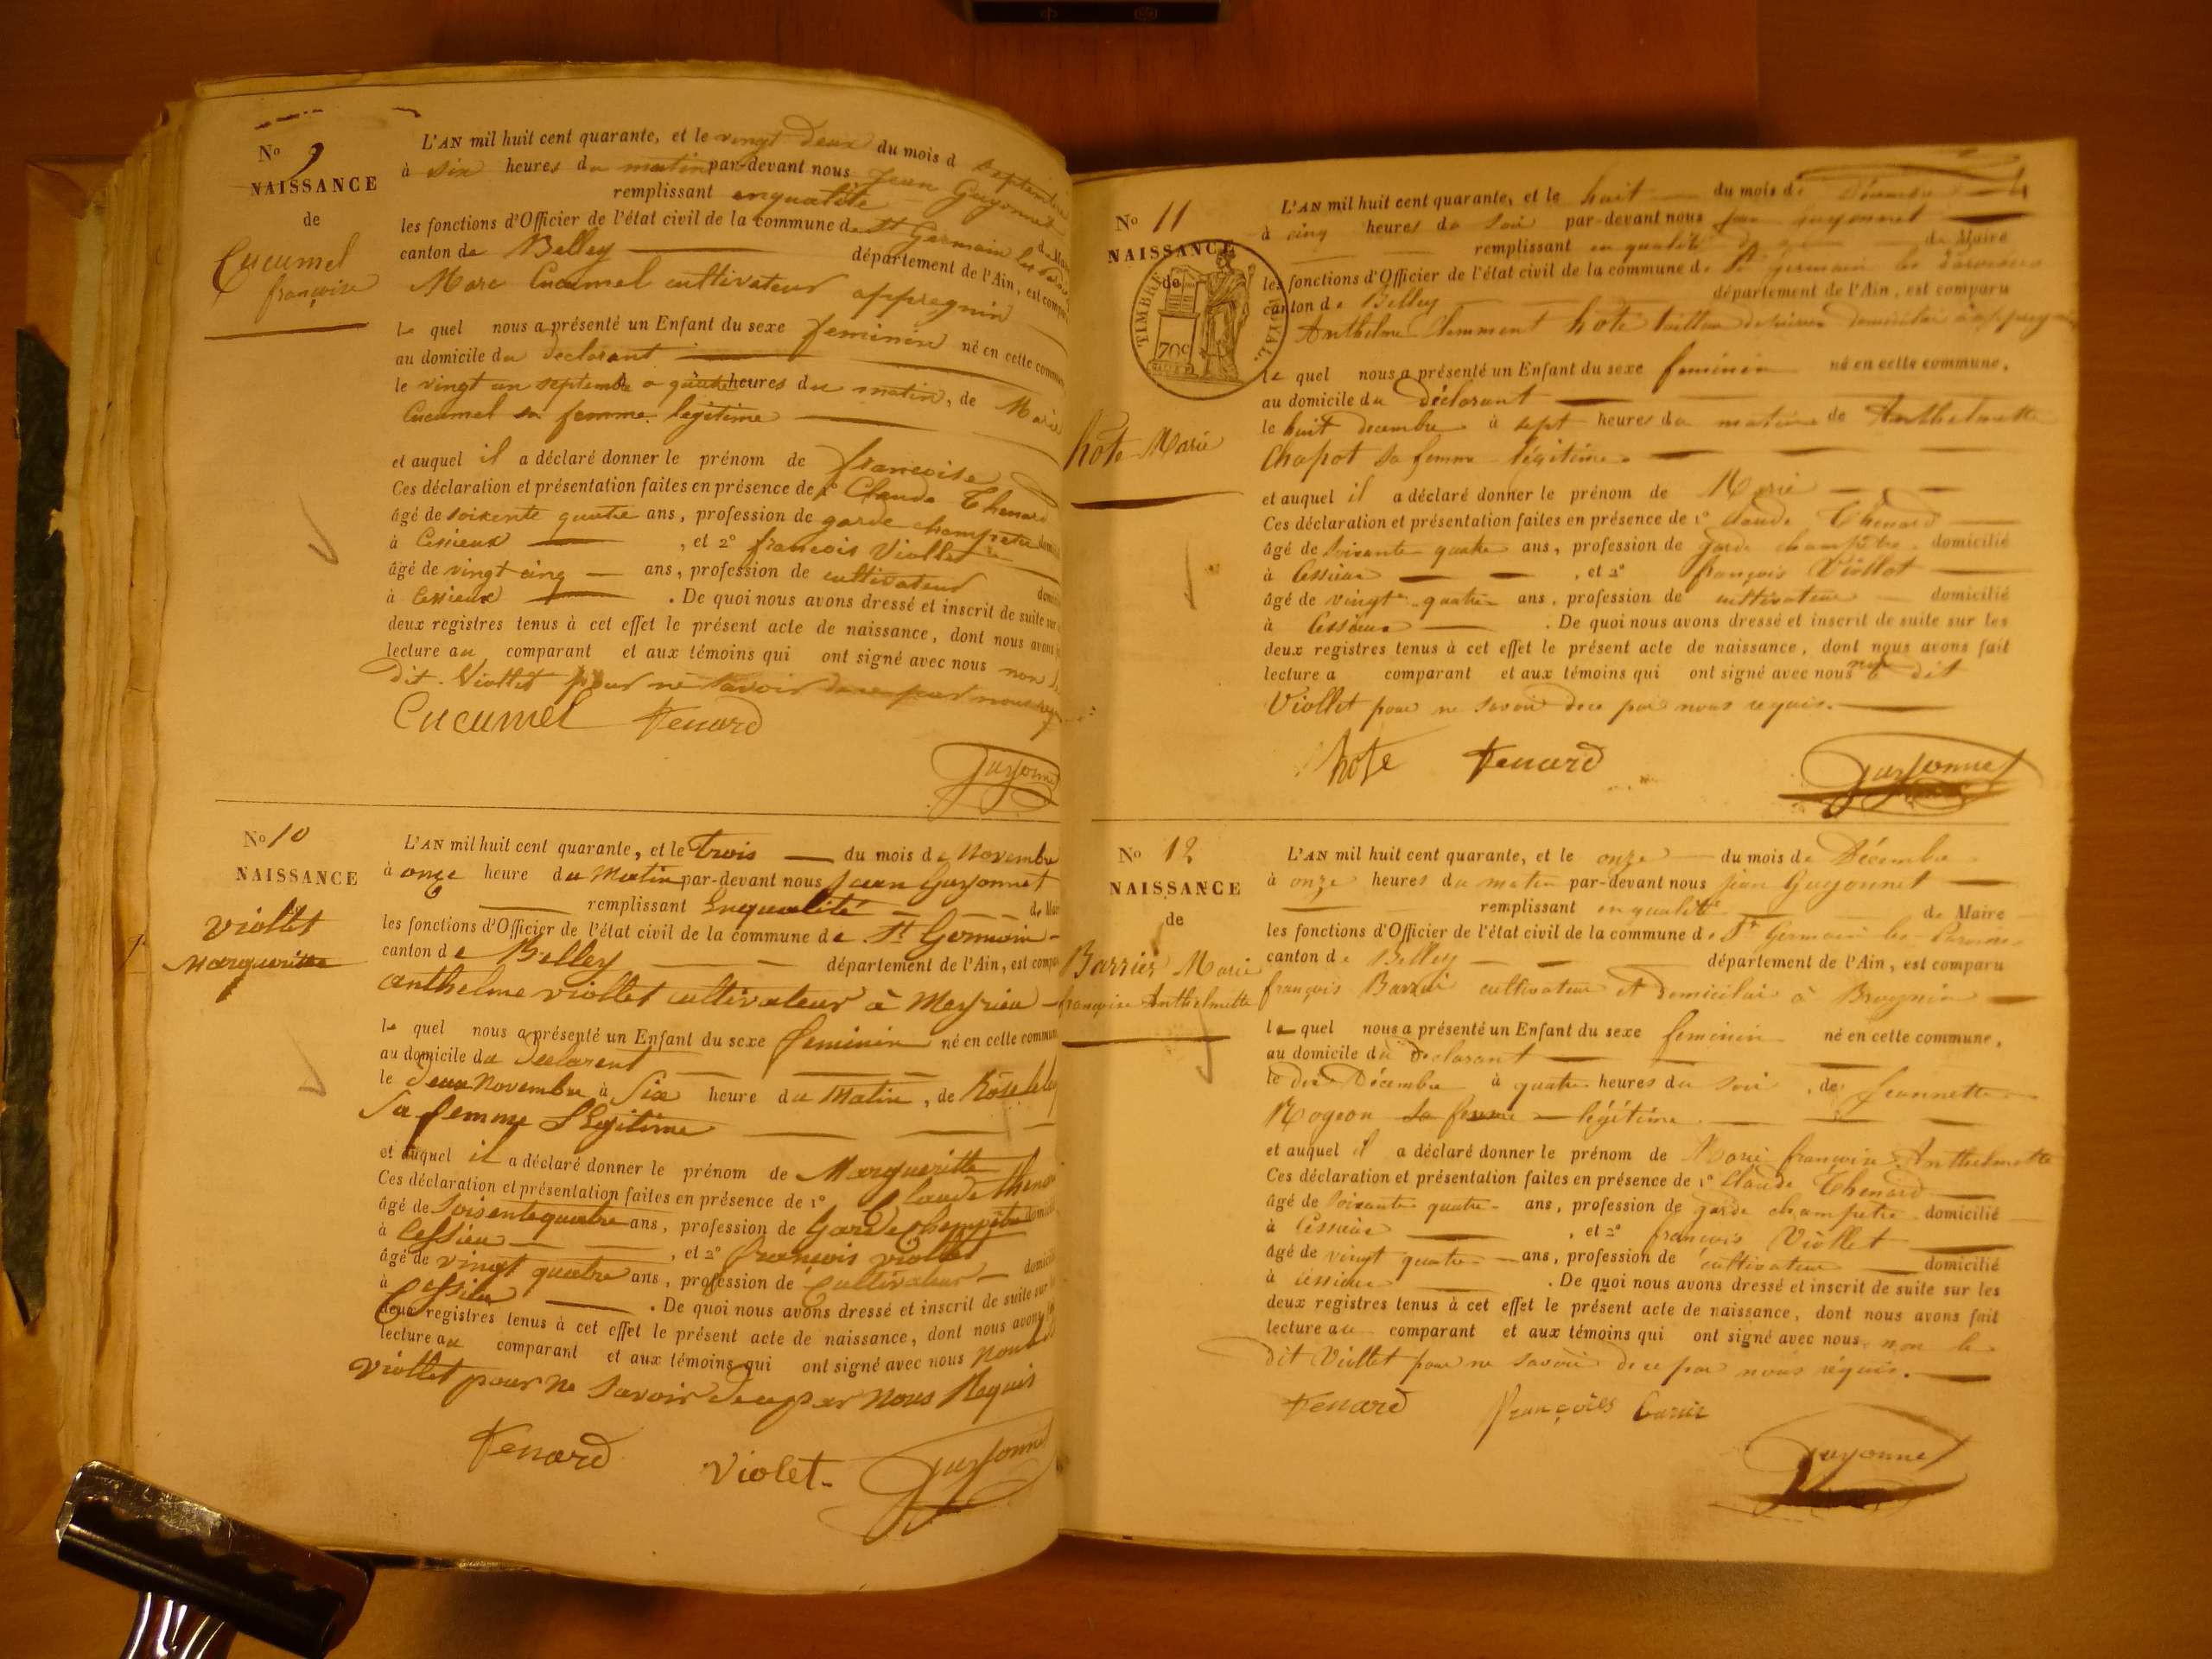 No 9
NAISSANCE
de
Cucumel
françoise
L'AN mil huit cent quarante, et le vingt deux du mois d septembre
à six heures du matin par-devant nous Jean Guyonnet
remplissant enqualité de Maire
les fonctions d'Officier de l'état civil de la commune de St Germain les
canton de Belley département de l'Ain, est comparu
Marc Cucumel cultivateur appregnin
le quel nous a présenté un Enfant du sexe feminin né en cette commune
au domicile du declarant
le vingt un septembre a quatre heures du matin, de Marie
Cucumel sa femme legitime
et auquel il a déclaré donner le prénom de francoise
Ces déclaration et présentation faites en présence de 1º Claude Thenard
âgé de soixente quatre ans, profession de garde champetre
à Cessieux , et 2º francois Viollet
âgé de vingt cinq ans, profession de cultivateur
à Cessieux . De quoi nous avons dressé et inscrit de suite sur
deux registres tenus à cet effet le présent acte de naissance, dont nous avons
lecture au comparant et aux témoins qui ont signé avec nous non
dit Viollet pour ne savoir de ce par nous
Cucumel Tenard
Guyonnet
No 10
NAISSANCE
viollet
Margueritte
L'AN mil huit cent quarante, et le trois du mois de Novembre
à onze heure du Matin par-devant nous Jean Guyonnet
remplissant Enqualité de
les fonctions d'Officier de l'état civil de la commune de St Germain
canton de Belley département de l'Ain, est
anthelme viollet cultivateur à Meyrieu
le quel nous a présenté un Enfant du sexe feminin né en cette commune
au domicile du declarent
le deux Novembre à Six heure du Matin, de Rose
Sa femme Legitime
et auquel il a déclaré donner le prénom de Margueritte
Ces déclaration et présentation faites en présence de 1º Claude
âgé de Soisente quatre ans, profession de Garde champêtre
à Cessieu , et 2º francois viollet
âgé de vingt quatre ans, profession de Cultivateur
à Cessieu . De quoi nous avons dressé et inscrit de suite sur
deux registres tenus à cet effet le présent acte de naissance, dont nous avons
lecture au comparant et aux témoins qui ont signé avec nous Non
viollet pour ne Savoir de ce par Nous Requis
Tenard Violet. Guyonnet
No 11
NAISSANCE
de
TIMBRE ROYAL.
70c
hote Marie
L'AN mil huit cent quarante, et le huit du mois de Décembre
à cinq heures du soir par-devant nous jean guyonnet
remplissant en qualité de Maire
les fonctions d'Officier de l'état civil de la commune de St germain les
canton de Belley département de l'Ain, est comparu
Anthelme Clemment hote
le quel nous a présenté un Enfant du sexe feminin né en cette commune,
au domicile du déclarant
le huit decembre à sept heures du matin de Anthelmette
Chapot sa femme légitime.
et auquel il a déclaré donner le prénom de Marie
Ces déclaration et présentation faites en présence de 1º Claude Thenard
âgé de soixante quatre ans, profession de garde champêtre domicilié
à Cessieux , et 2º françois Viollet
âgé de vingt quatre ans, profession de cultivateur domicilié
à Cessieux . De quoi nous avons dressé et inscrit de suite sur les
deux registres tenus à cet effet le présent acte de naissance, dont nous avons fait
lecture a comparant et aux témoins qui ont signé avec nous non le dit
Viollet pour ne savoir de ce par nous requis.
hote Tenard Guyonnet
No 12
NAISSANCE
de
Barrier Marie
françoise Anthelmette
L'AN mil huit cent quarante, et le onze du mois de Décembre
à onze heures du matin par-devant nous jean Guyonnet
remplissant en qualité de Maire
les fonctions d'Officier de l'état civil de la commune de St Germain les
canton de Belley département de l'Ain, est comparu
françois Barrier cultivateur et domicilié à Brognin
le quel nous a présenté un Enfant du sexe feminin né en cette commune,
au domicile du declarant
le dix Décembre à quatre heures du soir , de Jeannette
Mogeon sa femme légitime.
et auquel il a déclaré donner le prénom de Marie françoise Anthelmette
Ces déclaration et présentation faites en présence de 1º Claude Thenard
âgé de soixante quatre ans, profession de garde champetre domicilié
à Cessieux , et 2º françois Viollet
âgé de vingt quatre ans, profession de cultivateur domicilié
à Cessieux . De quoi nous avons dressé et inscrit de suite sur les
deux registres tenus à cet effet le présent acte de naissance, dont nous avons fait
lecture au comparant et aux témoins qui ont signé avec nous non le
dit Viollet pour ne savoir de ce par nous réquis.
Tenard françoies Barier
Guyonnet